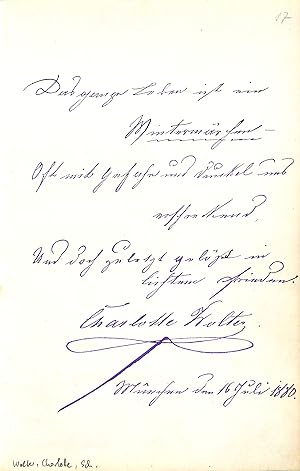 17
Das ganze Leben ist ein
Wintermärchen –
Oft mit Gefahr und Dunkel uns
erschreckend,
Und doch zuletzt gelöst in
lichtem Frieden.
Charlotte Wolter.
München den 16 Juli 1880.
Wolter, Charlotte, Sch.